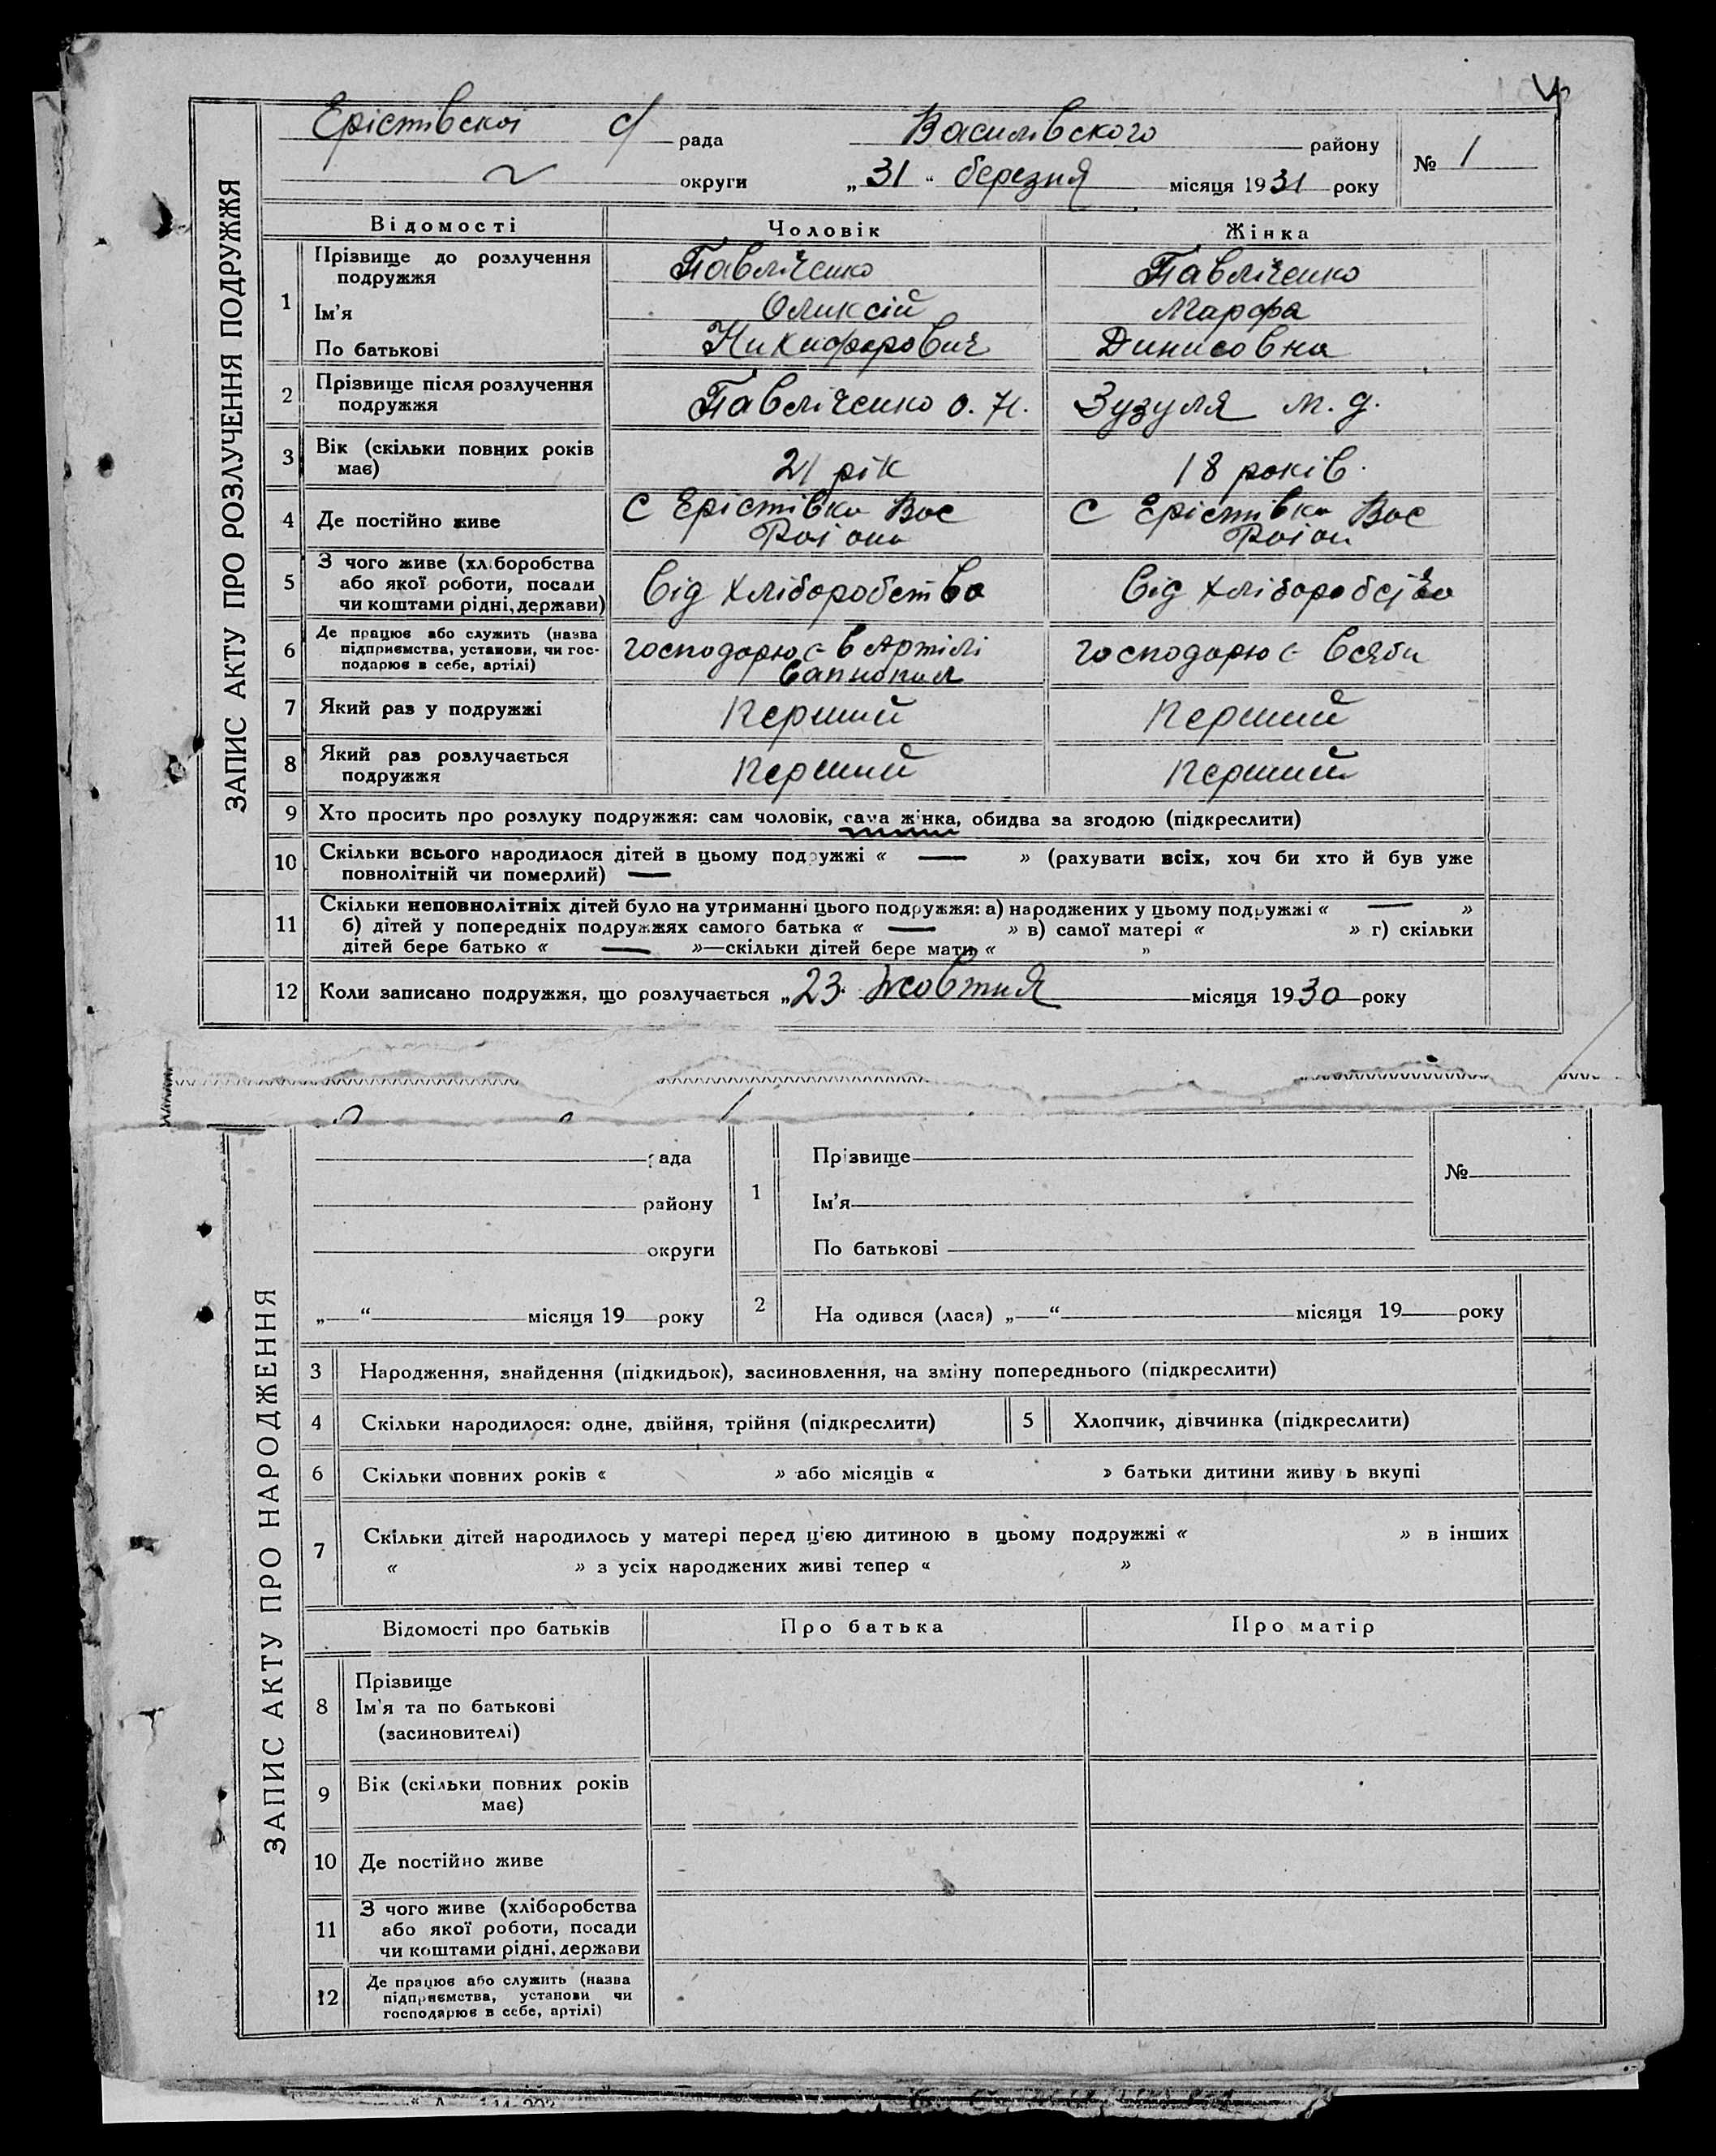 ЗАПИС АКТУ ПРО РОЗЛУЧЕННЯ ПОДРУЖЖЯ
Ерістівскої с/ рада Василівского району № 1
округи „31“ березня місяця 1931 року
Відомості Чоловік Жінка
1 Прізвище до розлучення подружжя Павліченко Павліченко
Ім'я Оликсій Марфа
По батькові Никифорович Динисовна
2 Прізвище після розлучення подружжя Павліченко О. Н. Зузуля М. Д.
3 Вік (скільки повних років має) 21 рік 18 років.
4 Де постійно живе С Ерістівка Вас С Ерістівка Вас
Раіона Раіон
5 З чого живе (хліборобства або якої роботи, посади чи коштами рідні, держави) від хліборобства від хліборобства
6 Де працює або служить (назва підприємства, установи, чи господарює в себе, артілі) господорює в Артілі господорює всяби
7 Який раз у подружжі перший перший
8 Який раз розлучається подружжя перший перший
9 Хто просить про розлуку подружжя: сам чоловік, сама жінка, обидва за згодою (підкреслити)
10 Скільки всього народилося дітей в цьому подружжі « — » (рахувати всіх, хоч би хто й був уже
повнолітній чи померлий) —
11 Скільки неповнолітніх дітей було на утриманні цього подружжя: а) народжених у цьому подружжі « — »
б) дітей у попередніх подружжях самого батька « — » в) самої матері « » г) скільки
дітей бере батько « — »—скільки дітей бере мати « »
12 Коли записано подружжя, що розлучається „23. Жовтня місяця 1930 року
ЗАПИС АКТУ ПРО НАРОДЖЕННЯ
рада 1 Прізвище №
району Ім'я
округи По батькові
„ “ місяця 19 року 2 На одився (лася) „ “ місяця 19 року
3 Народження, знайдення (підкидьок), засиновлення, на зміну попереднього (підкреслити)
4 Скільки народилося: одне, двійня, трійня (підкреслити) 5 Хлопчик, дівчинка (підкреслити)
6 Скільки повних років « » або місяців « » батьки дитини живу ь вкупі
7 Скільки дітей народилось у матері перед цією дитиною в цьому подружжі « » в інших
« » з усіх народжених живі тепер « »
Відомості про батьків Про батька Про матір
8 Прізвище
Ім'я та по батькові
(засиновителі)
9 Вік (скільки повних років
має)
10 Де постійно живе
11 З чого живе (хліборобства
або якої роботи, посади
чи коштами рідні, держави
12 Де працює або служить (назва
підприємства, установи чи
господарює в себе, артілі)